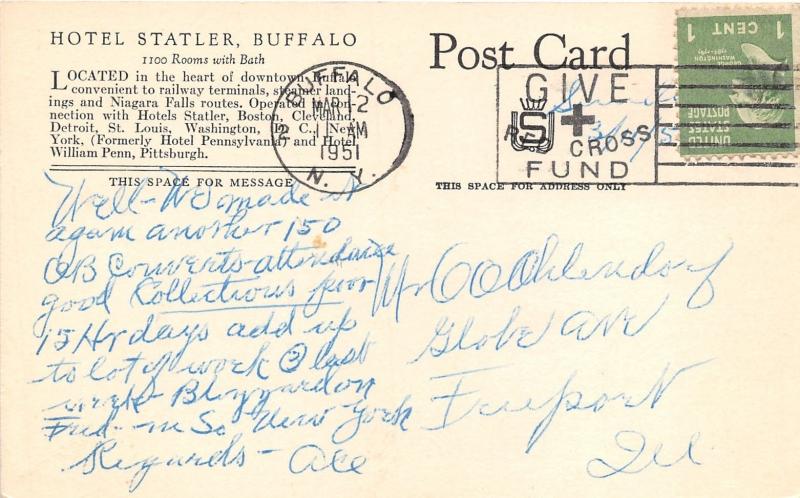 HOTEL STATLER, BUFFALO
1100 Rooms with Bath
LOCATED in the heart of downtown Buffalo,
convenient to railway terminals, steamer land-
ings and Niagara Falls routes. Operated in con-
nection with Hotels Statler, Boston, Cleveland,
Detroit, St. Louis, Washington, D. C.; New
York, (Formerly Hotel Pennsylvania) and Hotel
William Penn, Pittsburgh.
THIS SPACE FOR MESSAGE
Post Card
THIS SPACE FOR ADDRESS ONLY
BUFFALO
MAR 2
AM
1951
N. Y.
GIVE
RED CROSS
FUND
1 CENT 1
GEORGE
WASHINGTON
UNITED
STATES
POSTAGE
Well - We made it
again another 150
OB Converts - attendance
good Collections poor
15 Hr days add up
to lot of work last
week - Blizzard on
Fred - in So New York
Regards - Ace
Mr O O Ohlendorf
Globe Ave
Freeport
Ill